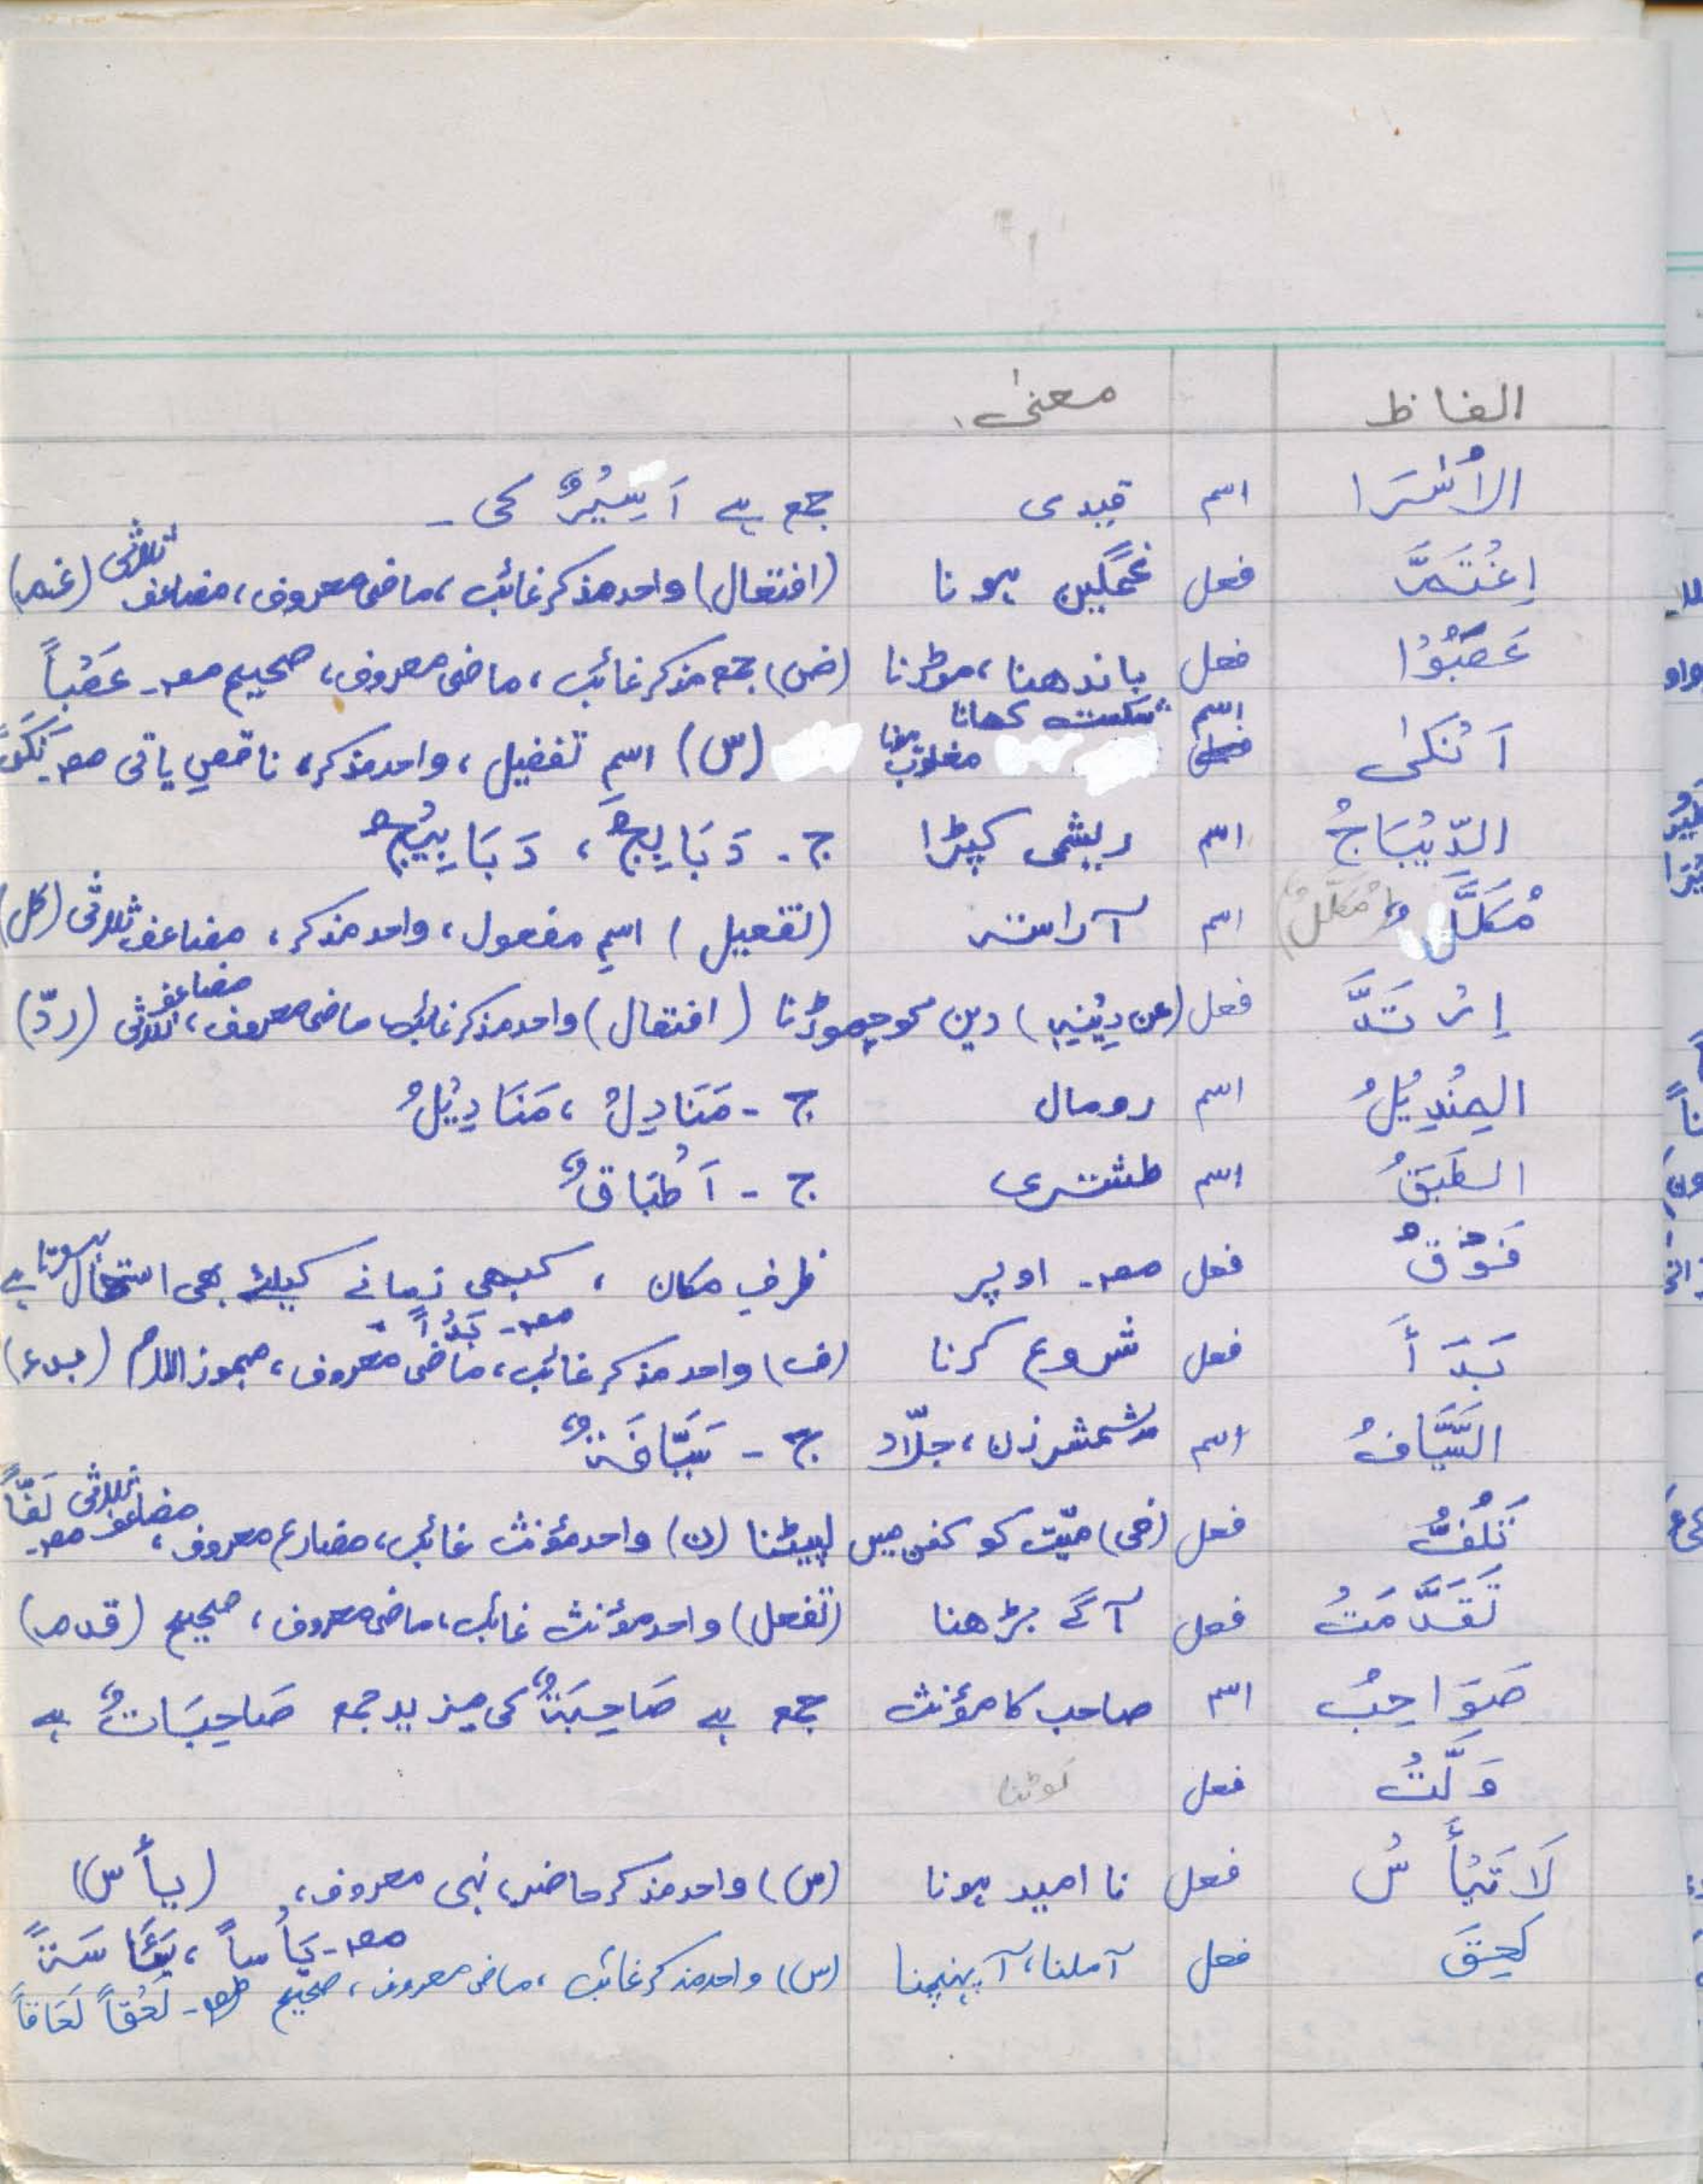 الفاظ معنیٰ
الأُسَرَا اسم قیدی جمع ہے اَسِیْرٌ کی ۔
اِغْتَمَّ فعل غمگین ہونا (افتعال) واحد مذکر غائب، ماضی معروف، مضاعف ثلاثی (غمم)
عَصَبُوْا فعل باندھنا، موڑنا (ض) جمع مذکر غائب، ماضی معروف، صحیح مصـ عَصْباً
اَنْکیٰ اسم شکست کھانا مغلوب ہونا (س) اسمِ تفضیل، واحد مذکر، ناقصِ یائی مصـ
الدِّیْبَاجُ اسم ریشمی کپڑا ج ۔ دَبَابِجٌ، دَبَابِیْجٌ
مُکَلَّلٌ (مُکَلَّلٌ) اسم آراستہ (تفعیل) اسمِ مفعول، واحد مذکر، مضاعف ثلاثی (کلل)
اِرْتَدَّ فعل (عن دِیْنِہٖ) دین کو چھوڑنا (افتعال) واحد مذکر غائب، ماضی معروف، مضاعف ثلاثی (ردّ)
المِنْدِیْلُ اسم رومال ج ۔ مَنَادِلُ، مَنَادِیْلُ
الطَبَقُ اسم طشتری ج ۔ اَطْبَاقٌ
فَوْقٌ فعل مصـ اوپر ظرفِ مکان، کبھی زمانے کیلئے بھی استعمال ہوتا ہے
بَدَأَ فعل شروع کرنا (ف) واحد مذکر غائب، ماضی معروف، مہموز اللام (بدء) مصـ بَدْأً
السَّیَّافُ اسم شمشر زن، جلّاد ج ۔ سَیَّافَۃٌ
تَلُفُّ فعل (فی) میّت کو کفن میں لپیٹنا (ن) واحد مؤنث غائب، مضارع معروف، مضاعف ثلاثی مصـ لَفّاً
تَقَدَّمَتْ فعل آگے بڑھنا (تفعل) واحد مؤنث غائب، ماضی معروف، صحیح (قدم)
صَوَاحِبُ اسم صاحب کا مؤنث جمع ہے صَاحِبَۃٌ کی مزید جمع صَاحِبَاتٌ ہے
وَلَّتْ فعل لَوٹنا
لَا تَیْأَسْ فعل نا امید ہونا (س) واحد مذکر حاضر، نہی معروف، (یأس)
مصـ یَأْساً، یَئَاسَۃً
لَحِقَ فعل آملنا، آ پہنچنا (س) واحد مذکر غائب، ماضی معروف، صحیح مصـ لَحْقاً لَحَاقاً